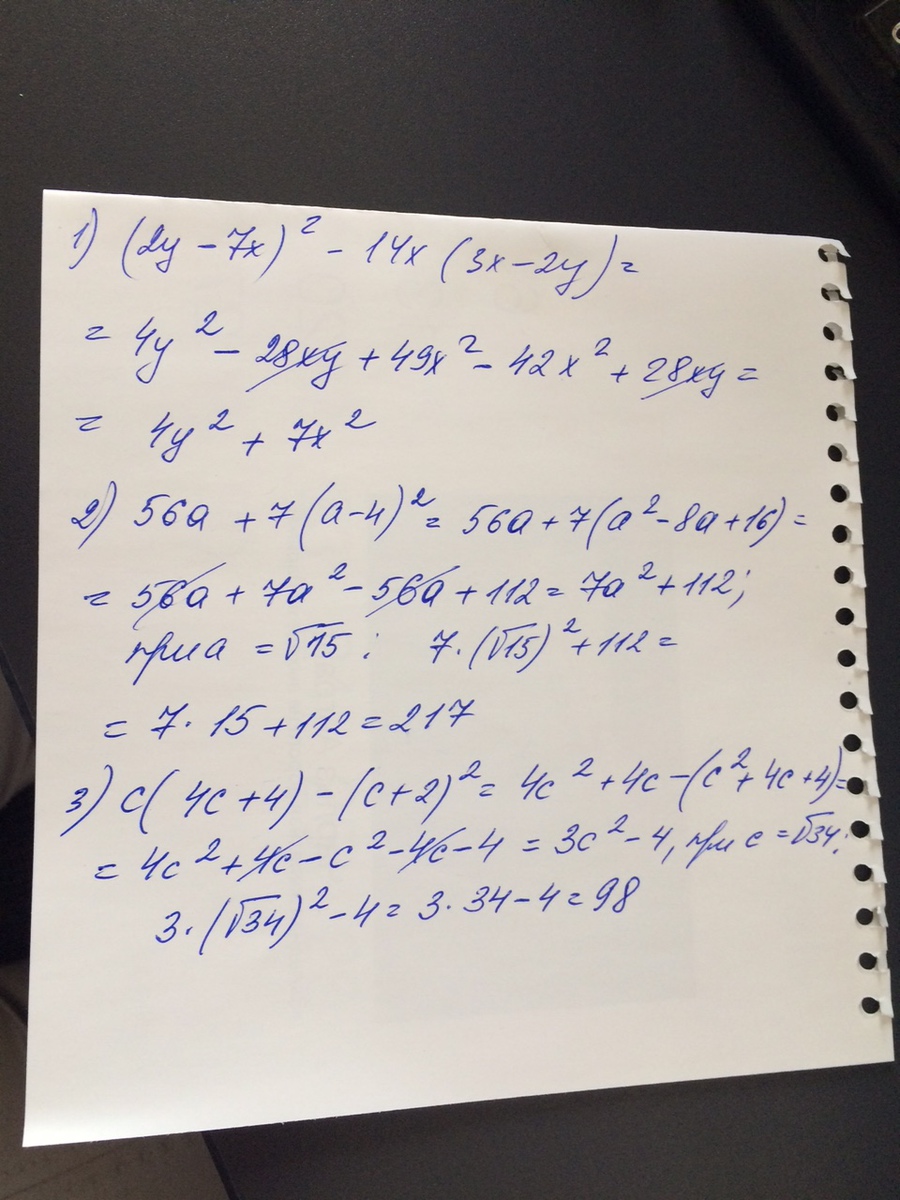 1) (2y - 7x)² - 14x (3x - 2y) =
= 4y² - 28xy + 49x² - 42x² + 28xy =
= 4y² + 7x²
2) 56a + 7(a-4)² = 56a + 7(a² - 8a + 16) =
= 56a + 7a² - 56a + 112 = 7a² + 112;
при a = √15 : 7·(√15)² + 112 =
= 7·15 + 112 = 217
3) c(4c+4) - (c+2)² = 4c² + 4c - (c² + 4c + 4) =
= 4c² + 4c - c² - 4c - 4 = 3c² - 4, при c = √34:
3·(√34)² - 4 = 3·34 - 4 = 98